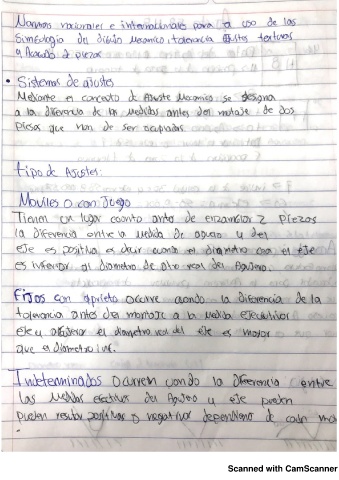 Normas nacionales e internacionales para el uso de las
Simbología del dibujo Mecanico, tolerancia Ajustes texturas
y Acabado de piezas
• Sistemas de ajustes
Mediante el concepto de Ajuste Mecanico se designa
a la diferencia de la Medidas antes del montaje de dos
piesas que han de ser acopladas
tipo de Ajustes:
Moviles o con Juego
Tienen un lugar cuanto antes de 2 piezas
la Diferencia entre la Medida de agujero y del
eje es positiva es decir cuando el diametro del eje
es inferior al diametro de real del Agujero.
Fijos con aprieto ocurre cuando la diferencia de la
tolerancia antes del montaje a la Medida
eje y el diametro real del eje es mayor
que el diametro
Indeterminados Ocurren cuando la Diferencia entre
las Medidas efectivas del Agujero y eje pueden
pueden resultar positivas o negativas dependiendo de cada
Scanned with CamScanner